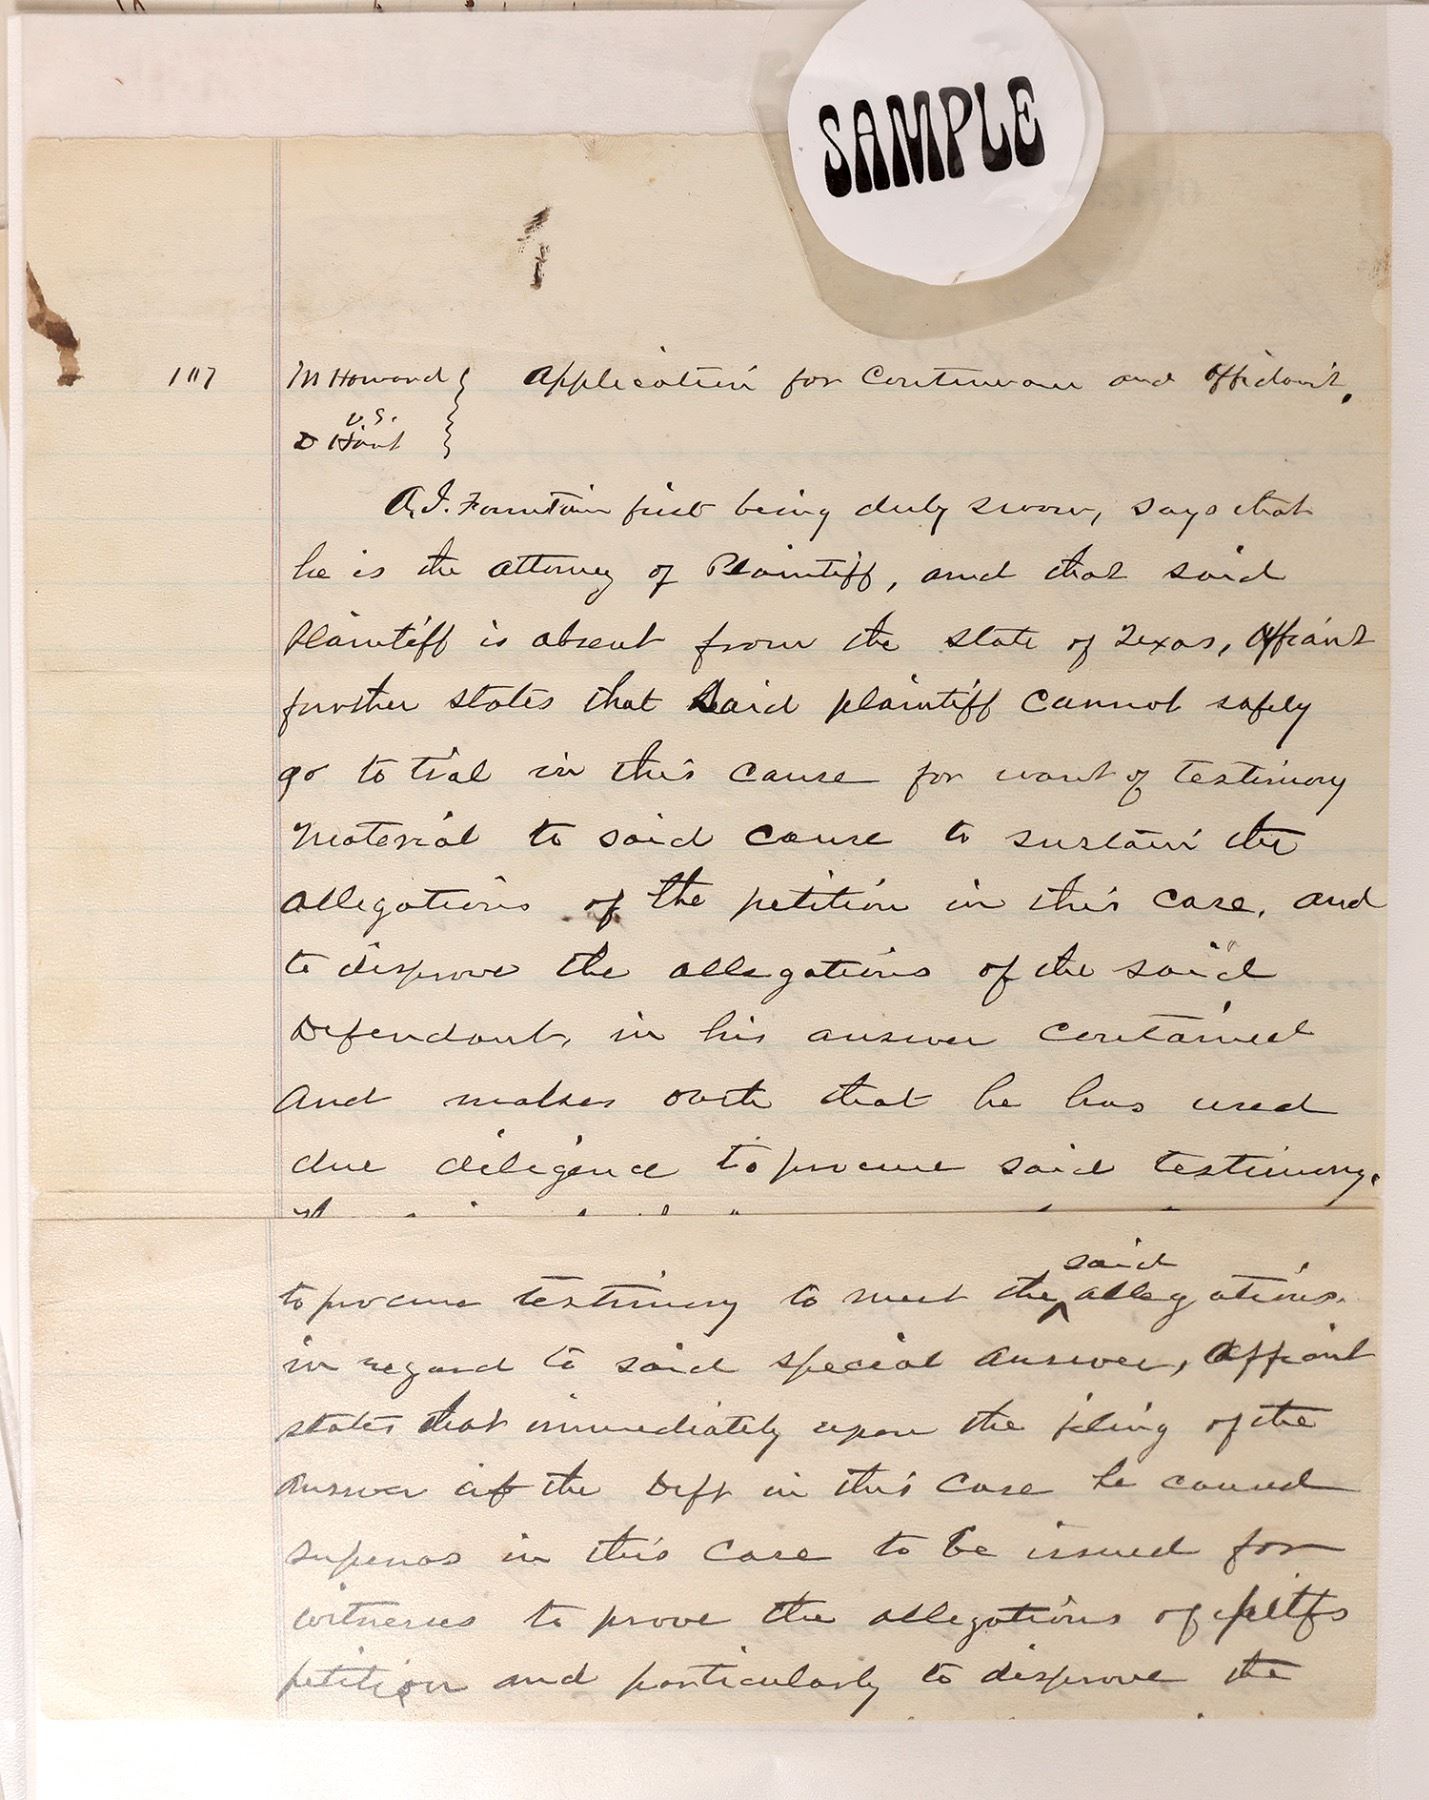 SAMPLE
117 M Howard } Application for Continuance and Affidavit.
v.s.
D Hart
A. J. Fountain first being duly sworn, says that
he is the attorney of Plaintiff, and that said
Plaintiff is absent from the state of Texas, Affiant
further states that said plaintiff cannot safely
go to trial in this cause for want of testimony
material to said cause to sustain the
allegations of the petition in this case, and
to disprove the allegations of the said
Defendant, in his answer contained
And makes oath that he has used
due diligence to procure said testimony.
to procure testimony to meet the said allegations.
in regard to said special answer, Affiant
states that immediately upon the filing of the
answer of the Deft in this case he caused
supenas in this case to be issued for
witnesses to prove the allegations of pltffs
petition and particularly to disprove the